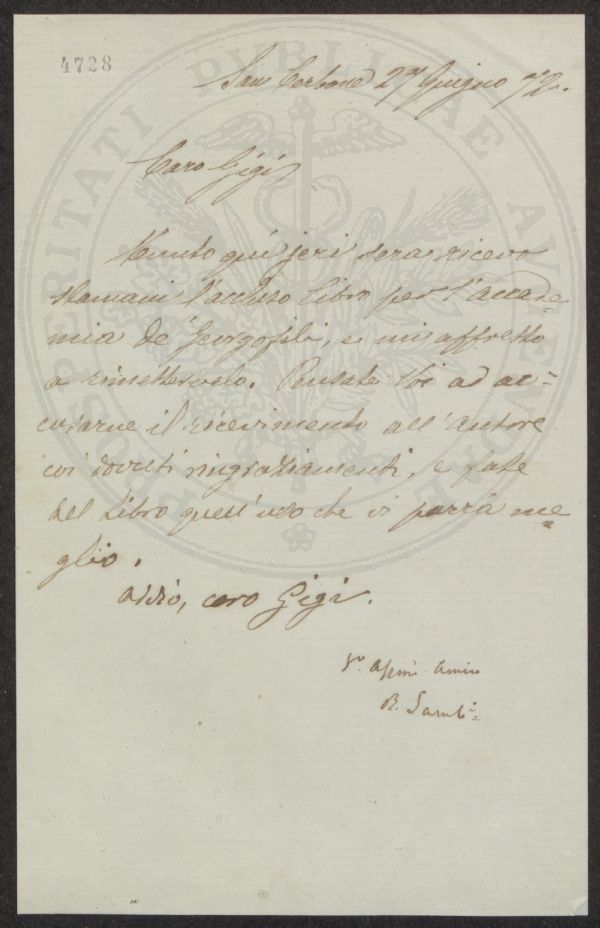 4728
San Cerbone 27 Giugno 72.
Caro Gigi
Venuto quì jeri sera ricevo
stamani l'accluso libro per l'Accade=
mia de' Georgofili, e mi affretto
a rimettervelo. Pensate Voi ad ac=
cusarne il ricevimento all'Autore
coi dovuti ringraziamenti, e fate
del libro quell'uso che vi parrà me=
glio.
Addio, caro Gigi.
Vo. Affmo Amico
R. Lamb.
PROSPERITATI PVBLICAE AVGENDAE